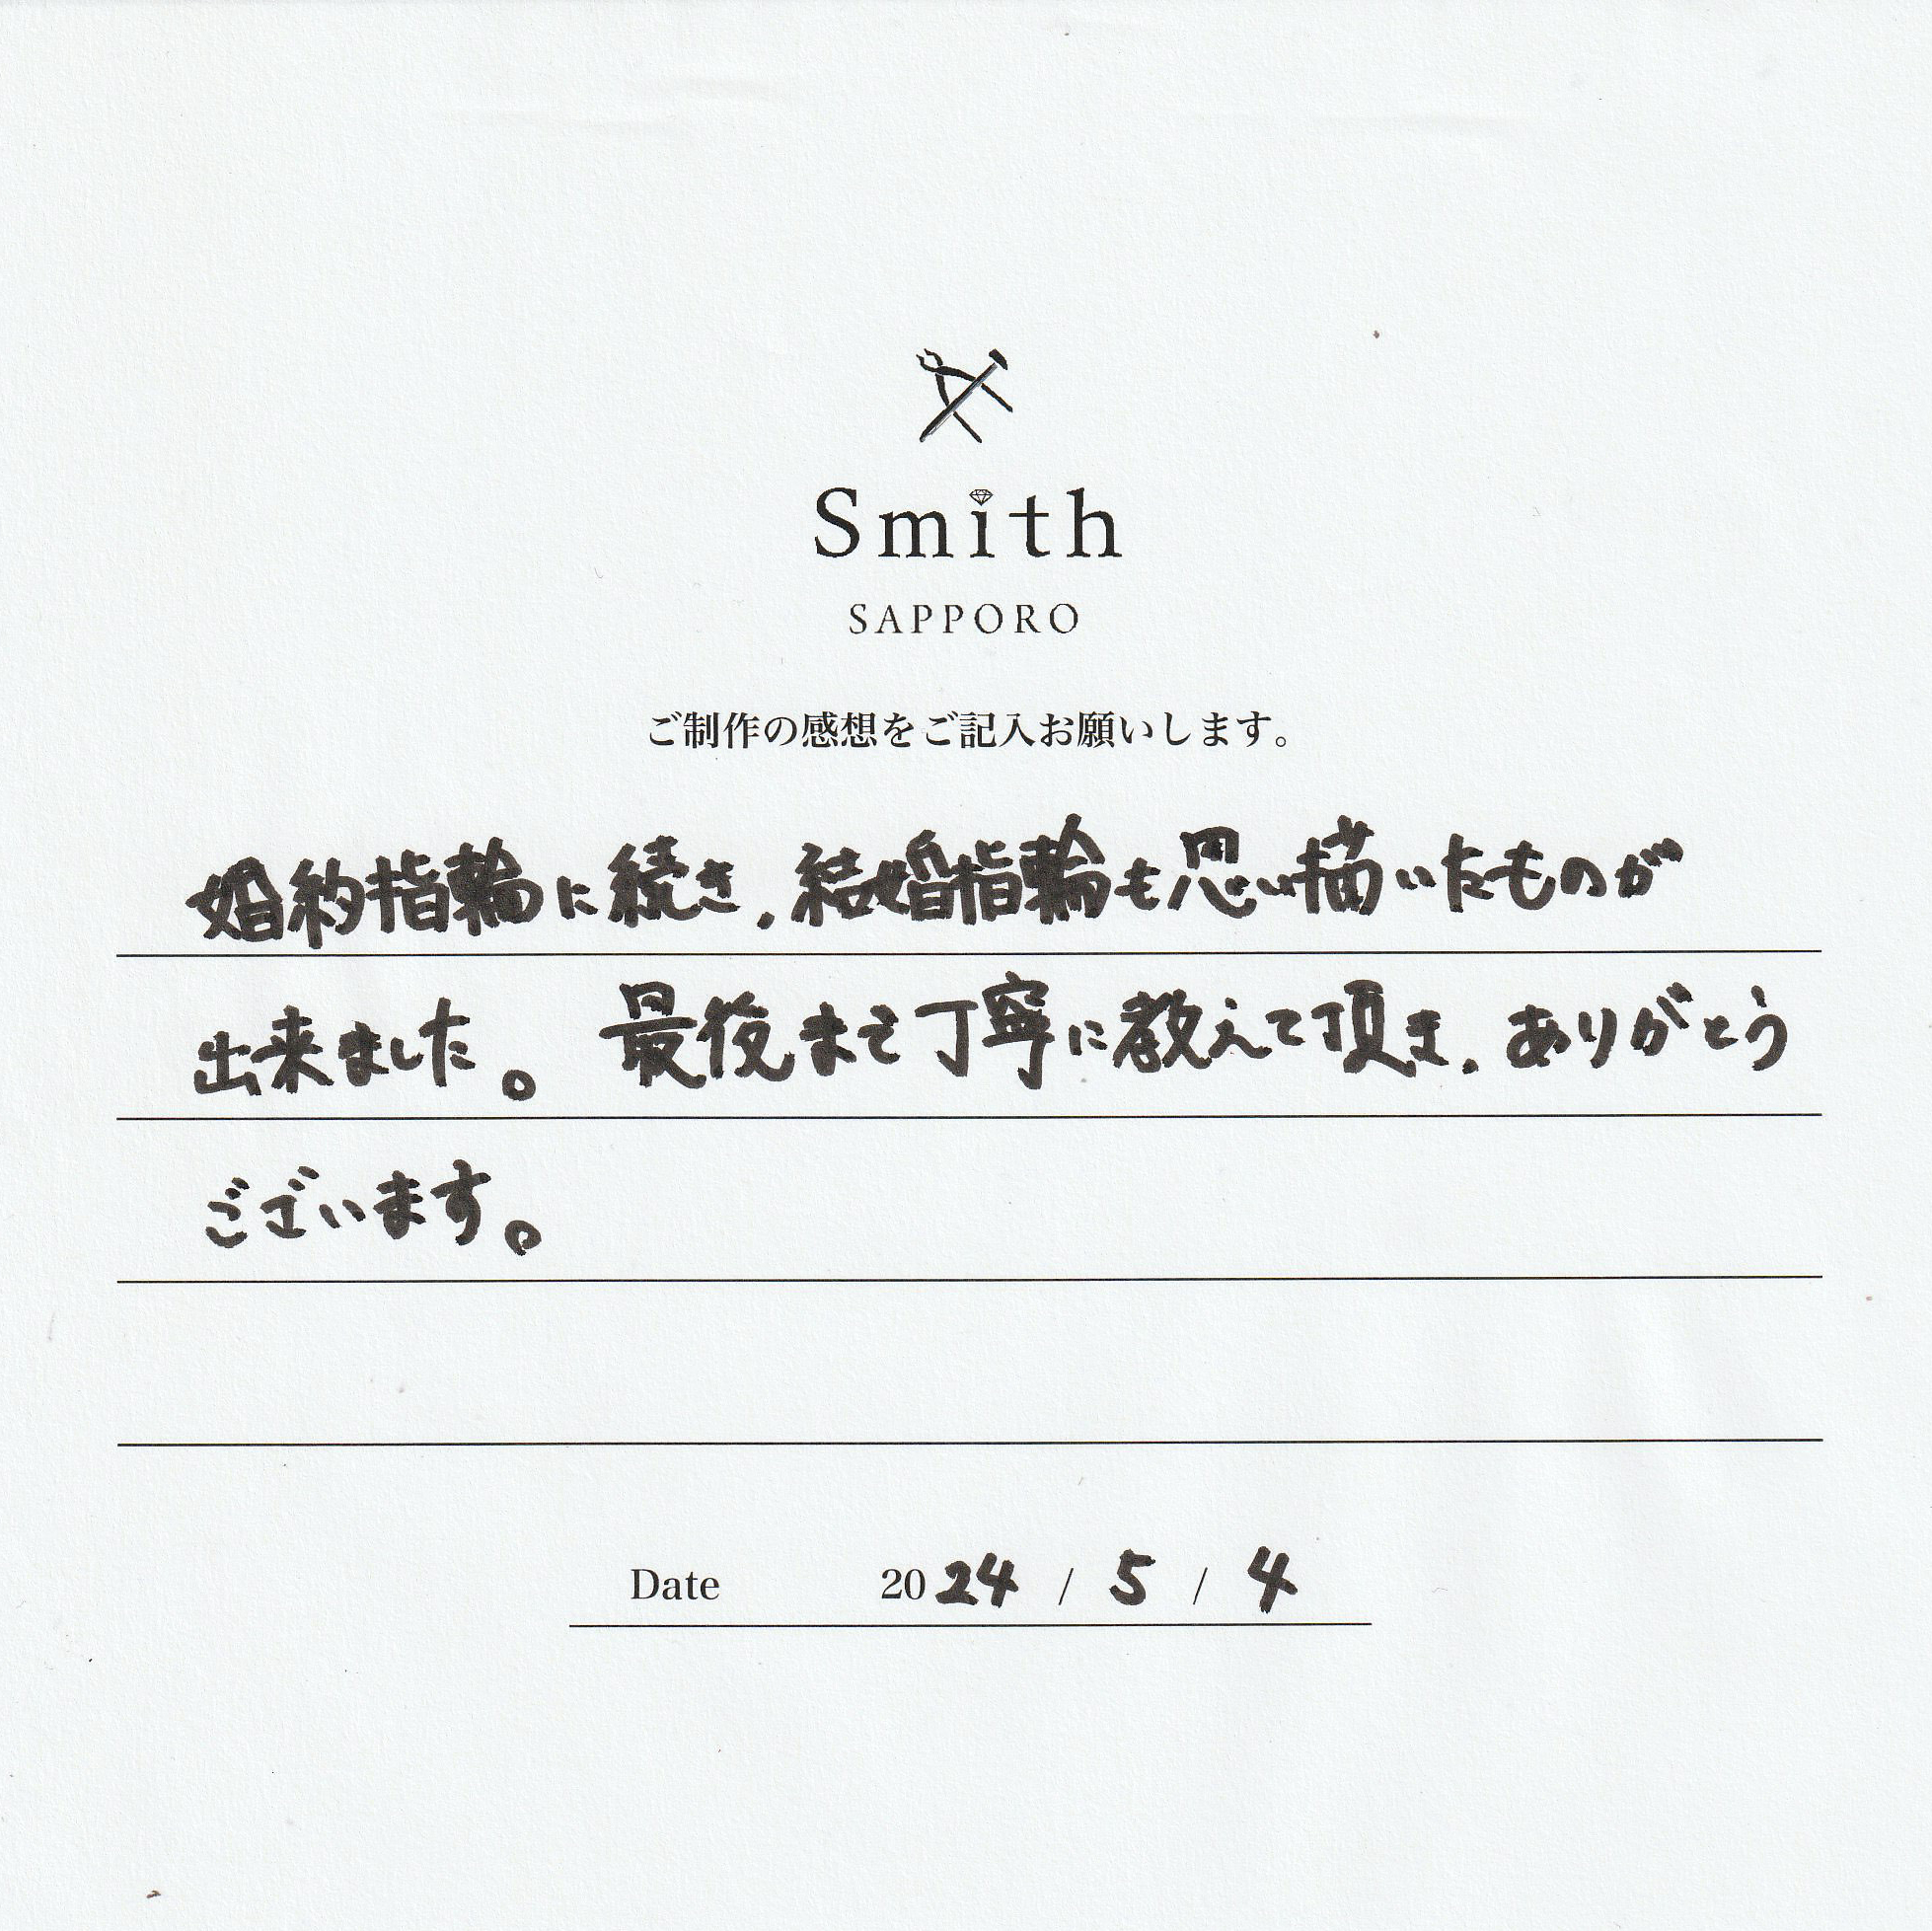 Smith
SAPPORO
ご制作の感想をご記入お願いします。
婚約指輪に続き、結婚指輪も思い描いたものが
出来ました。最後まで丁寧に教えて頂き、ありがとう
ございます。
Date 2024 / 5 / 4